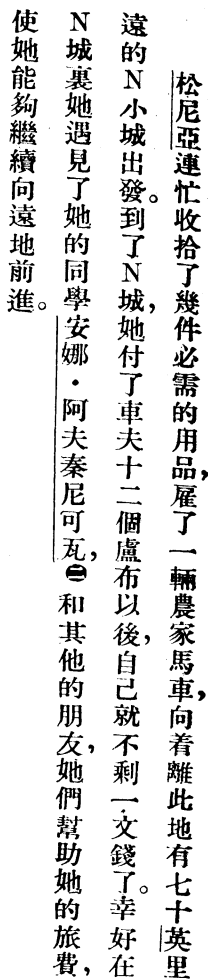 松尼亞連忙收拾了幾件必需的用品，雇了一輛農家馬車，向着離此地有七十英里
遠的N小城出發。到了N城，她付了車夫十二個盧布以後，自己就不剩一文錢了。幸好在
N城裏她遇見了她的同學安娜·阿夫秦尼可瓦，㊁和其他的朋友，她們幫助她的旅費，
使她能夠繼續向遠地前進。